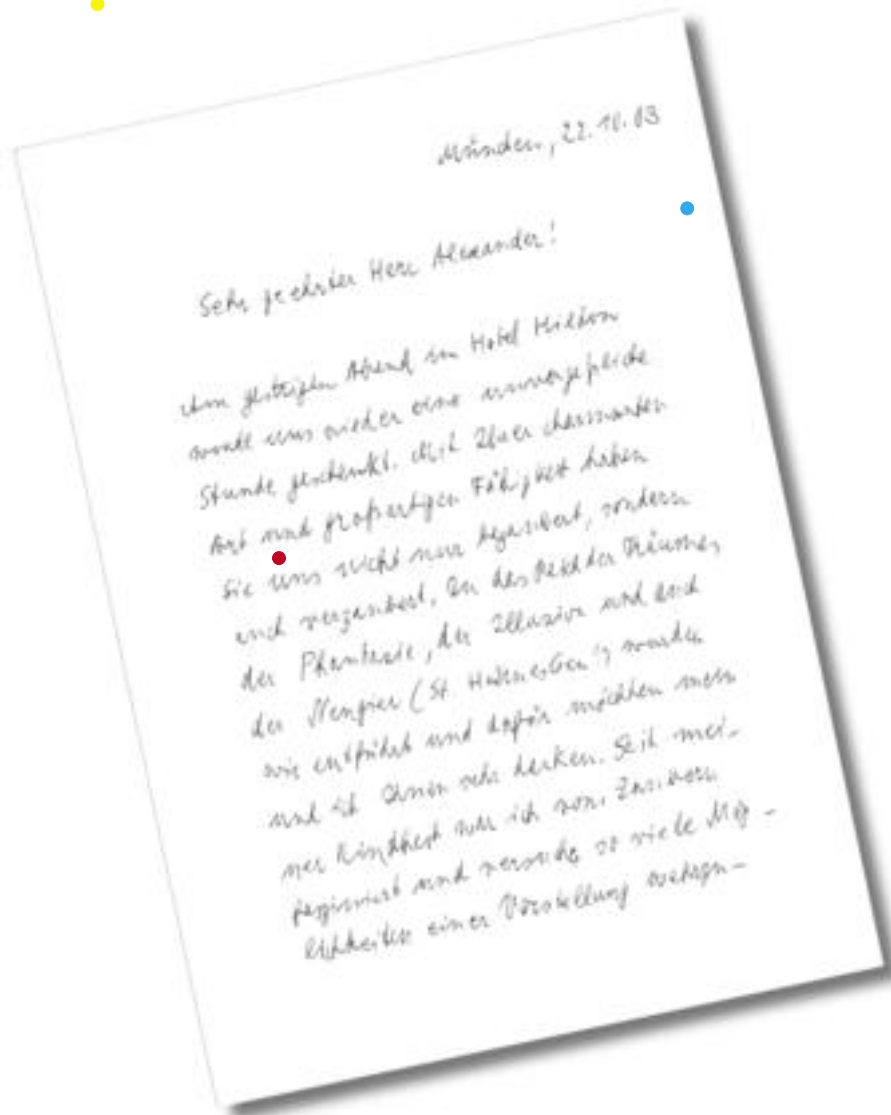 München, 22.10.03
Sehr geehrter Herr Alexander!
Am gestrigen Abend im Hotel Hilton
wurde uns wieder eine unvergeßliche
Stunde geschenkt. Mit Ihrer charmanten
Art und großartigen Fähigkeit haben
Sie uns nicht nur begeistert, sondern
auch verzaubert. In das Reich der Träume,
der Phantasie, der Illusion und auch
der Neugier (St.
wir entführt und dafür möchten
und ich Ihnen sehr danken. Seit mei-
ner Kindheit war ich von Zauberei
fasziniert und versuche so viele Mög-
lichkeiten einer Vorstellung